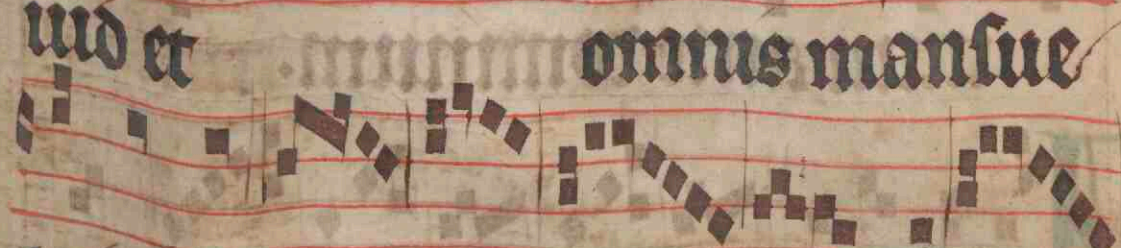 uid et omnis mansue